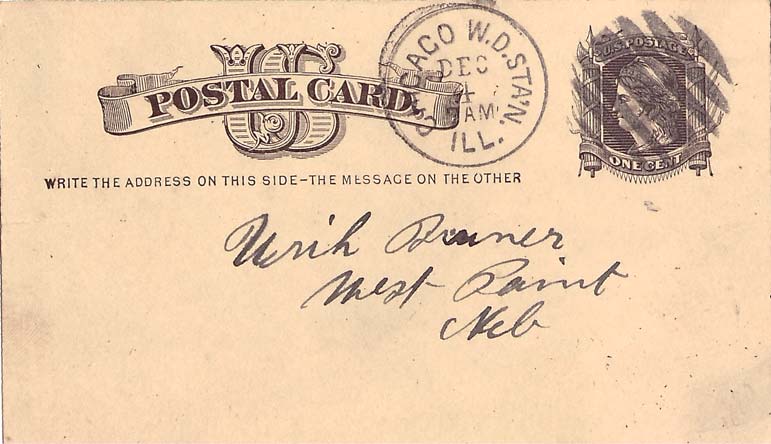 US
POSTAL CARD
WRITE THE ADDRESS ON THIS SIDE-THE MESSAGE ON THE OTHER
CHICAGO W.D.STA'N.
DEC
4
AM
ILL.
U.S. POSTAGE
ONE CENT
Urih Bruner
West Point
Neb